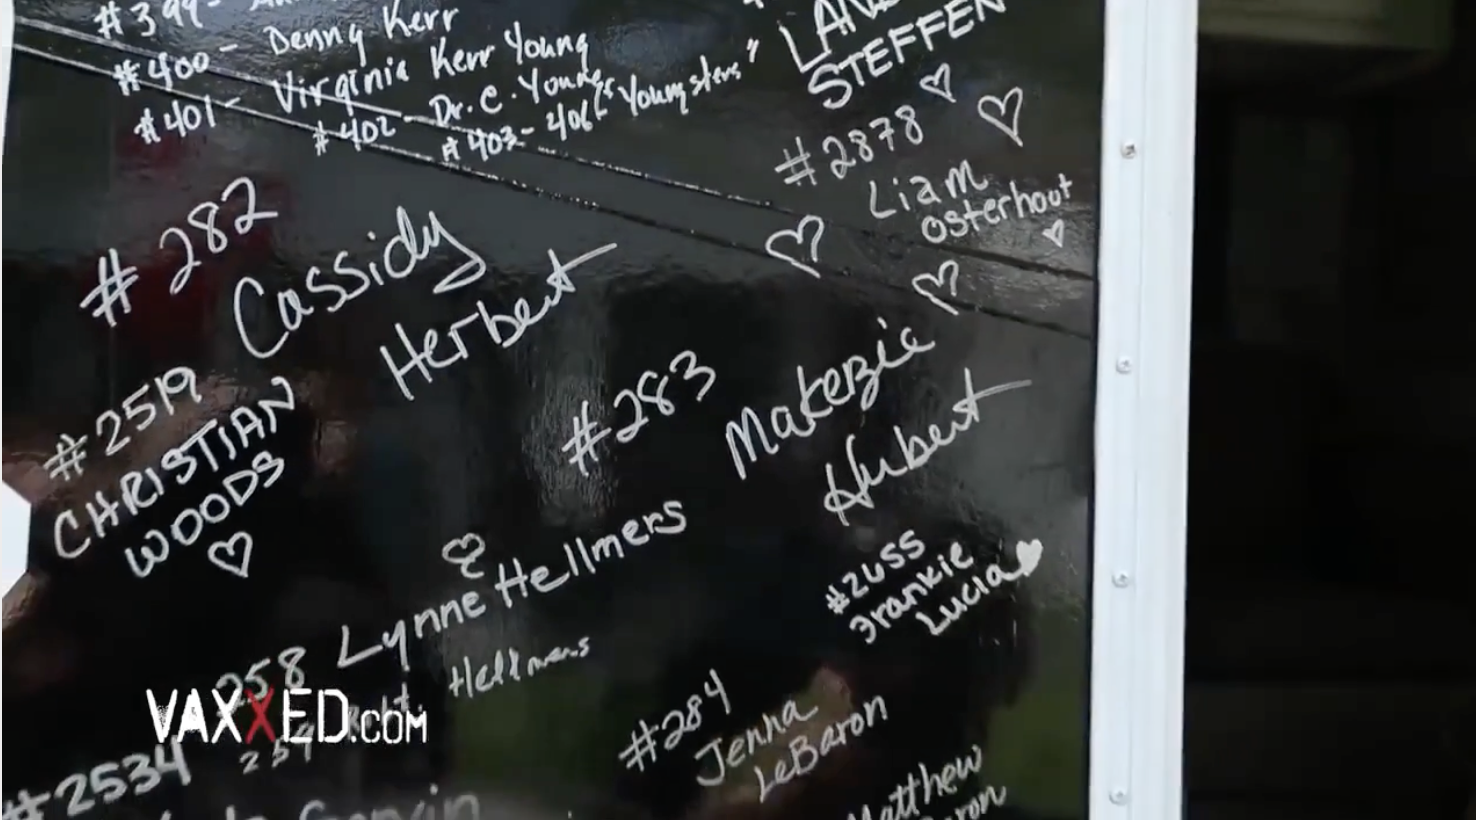 #399-
#400 - Denny Kerr
#401 - Virginia Kerr Young
#402 - Dr. C. Young
#403-406 "Youngsters"
STEFFEN
#2878
Liam
Osterhout
#282
Cassidy
Herbert
#2519
CHRISTIAN
WOODS
#283
Makenzie
Hubert
#2655
Frankie
Lucia
258 Lynne Hellmers
259
Hellmers
VAXXED.COM
#284
Jenna
LeBaron
#2534
Matthew